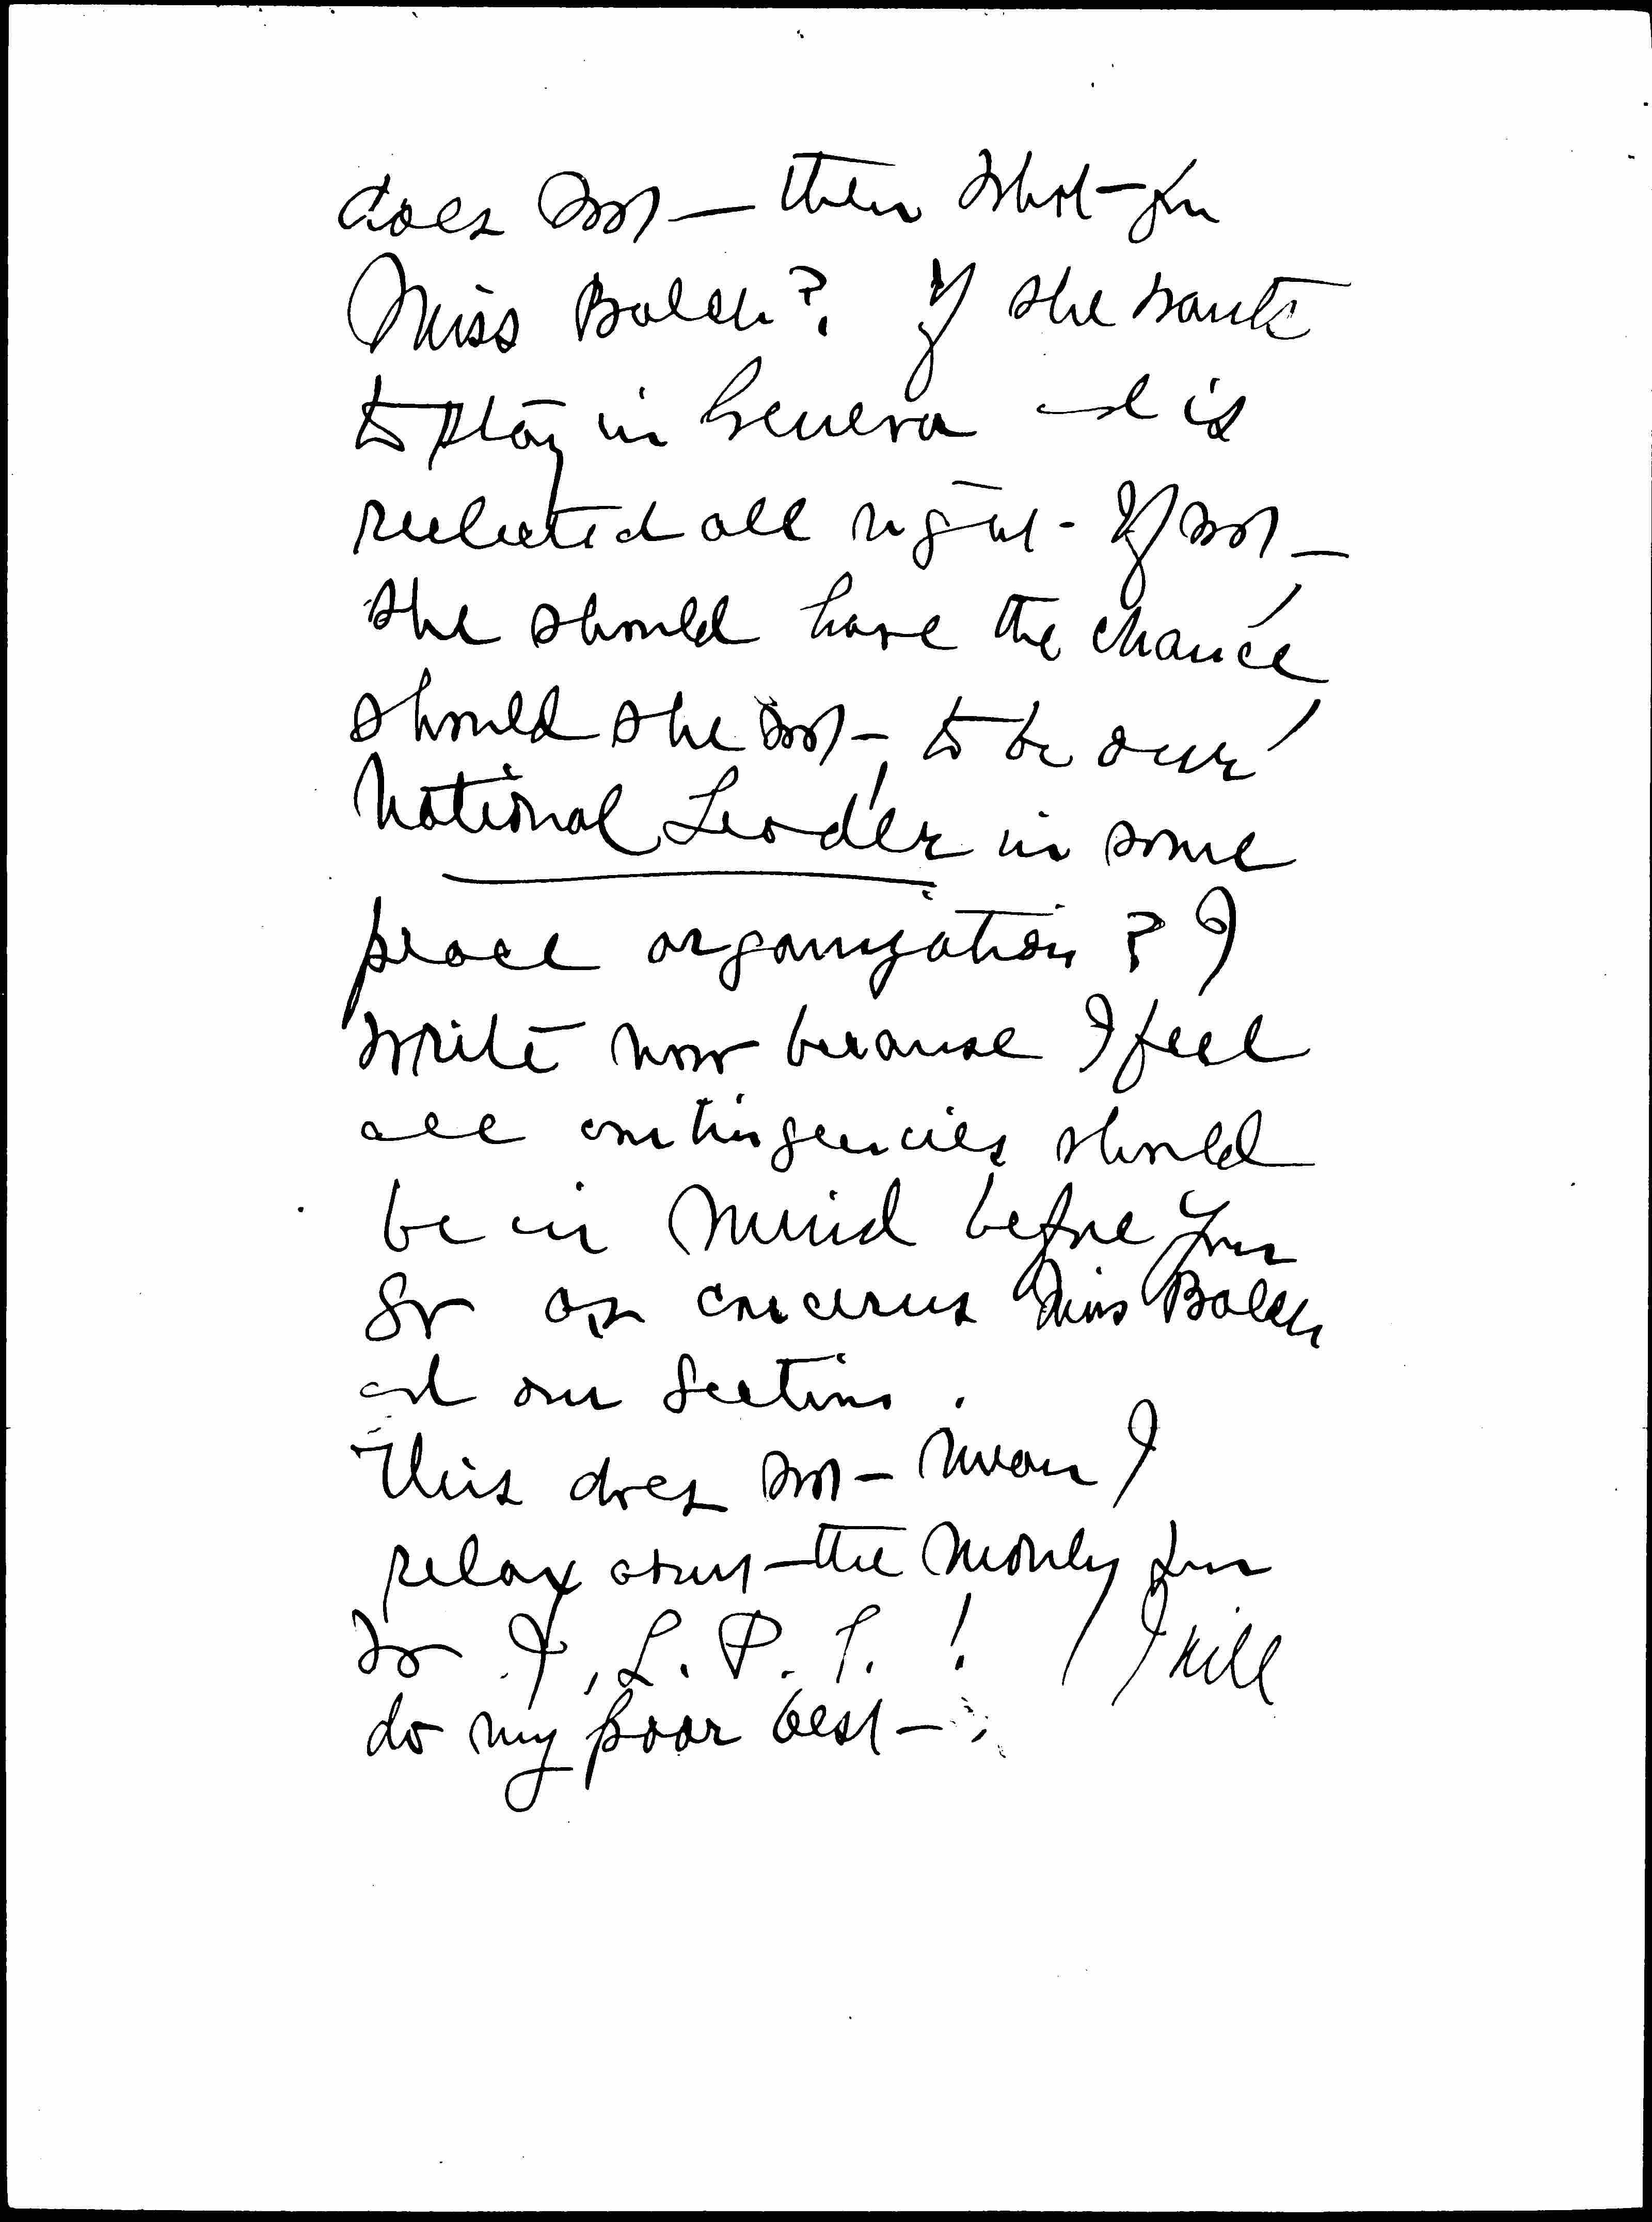 does not — then what for
Miss Balch? If she wants
to stay in Geneva and is
reelected all right - If not —
she should have the chance,
should she not, to be our
National Leader in some
peace organization? I
write now because I feel
all contingencies should
be in mind before you
go as concerns Miss Balch
and our Section.
This does not mean I
relax about the money for
W. I. L. P. F. ! I will
do my poor best — .